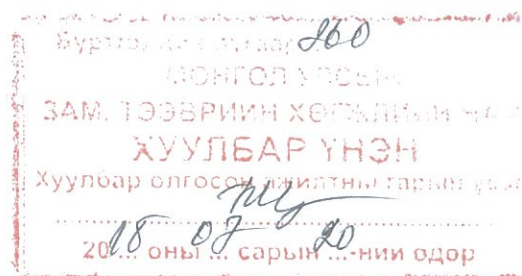 Бүртгэлийн дугаар 860
МОНГОЛ УЛСЫН
ЗАМ, ТЭЭВРИЙН ХӨГЖЛИЙН
ХУУЛБАР ҮНЭН
Хуулбар олгосон ажилтны гарын үсэг
2018 оны 07 сарын 20-ний өдөр